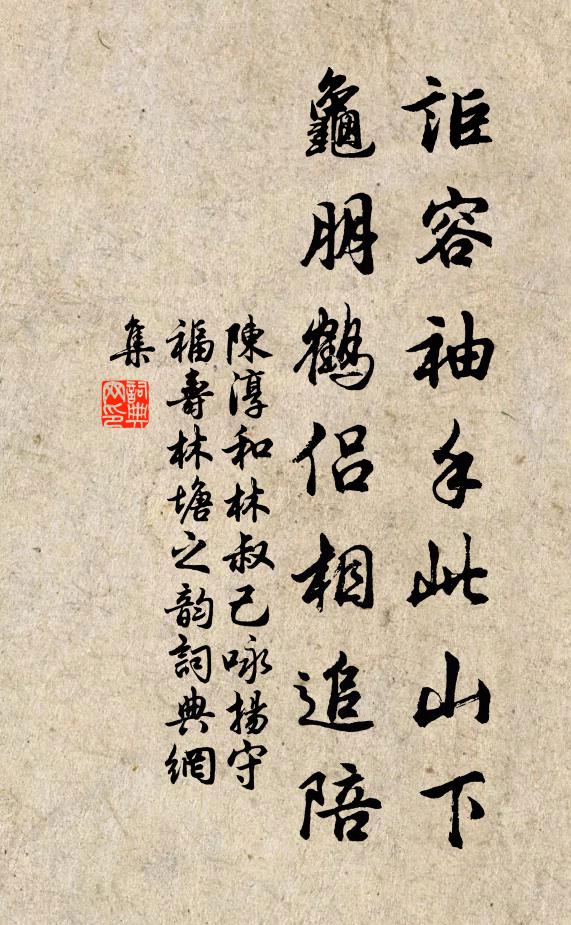 詎容袖手此山下
龜朋鶴侶相追陪
陳淳和林叔己咏揚守
福壽林塘之韵詞典網
集
詞典
网印